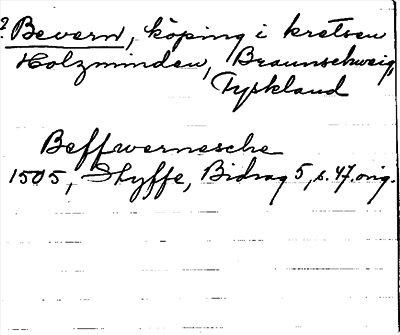 ? Bevern, köping i kretsen
Holzminden, Braunschweig,
Tyskland
Beffwernesche
1505, Styffe, Bidrag 5, s. 47. orig.